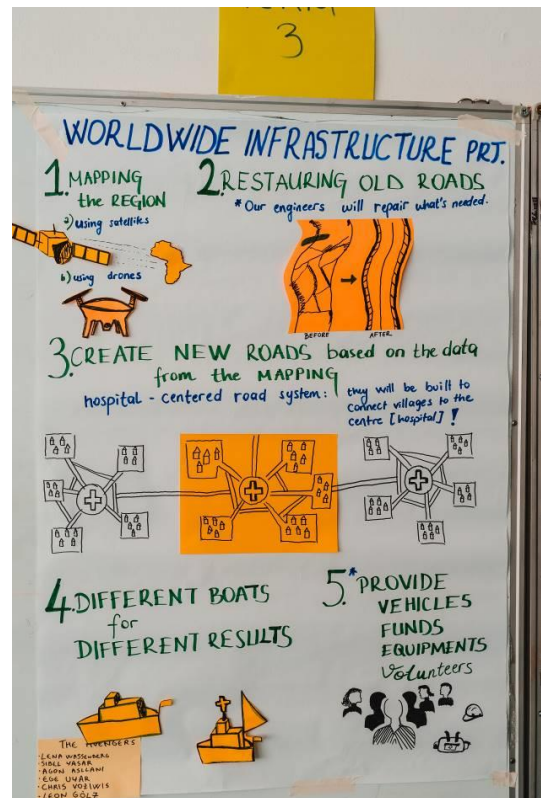 3
WORLDWIDE INFRASTRUCTURE PRJ.
1. MAPPING
the REGION
a) using satellites
b) using drones
2. RESTAURING OLD ROADS
* Our engineers will repair what's needed.
BEFORE AFTER
3. CREATE NEW ROADS based on the data
from the MAPPING
hospital - centered road system:
they will be built to
connect villages to the
centre [hospital] !
4. DIFFERENT BOATS
for
DIFFERENT RESULTS
5.* PROVIDE
VEHICLES
FUNDS
EQUIPMENTS
Volunteers
THE AVENGERS
·LENA WASSENBERG
·SIBEL VASAR
·AGON ASLLANI
·EGE UYAR
·CHRIS VOZIWIS
·LEON GÖLZ